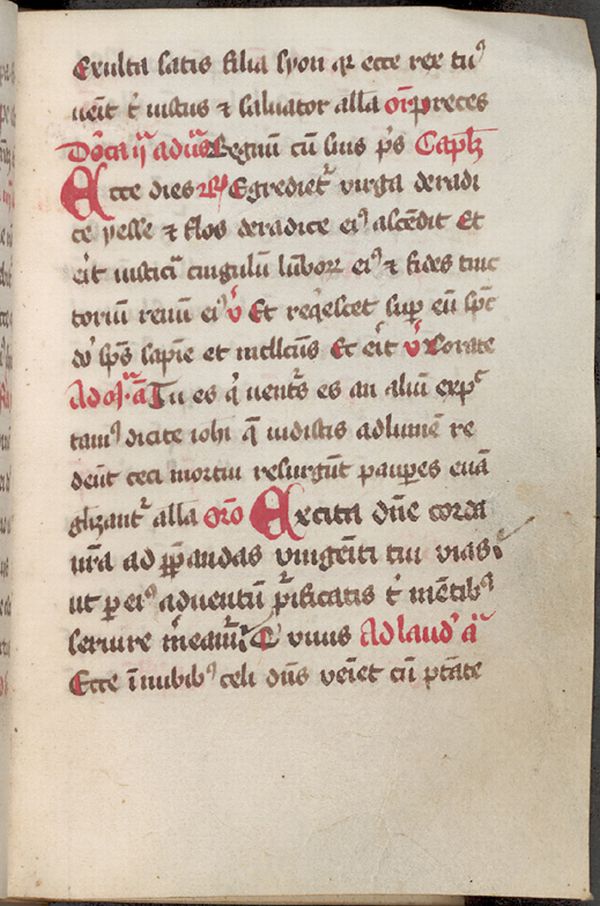 Exulta satis filia syon qr ecce rex tuꝰ
ueīt t̄ iustus ⁊ saluator alla or̄ preces
Dōca ij aduꝰ Regnū cū suis p̄s Capłꝫ
Ecce dies R̸ Egrediet᷑ virga deradi
ce yesse ⁊ flos deradice eiꝰ ascēdit Et
erit iusticia cingulū lūboꝝ eiꝰ ⁊ fides cinc
toriū renū eiꝰ v̓ Et reqͥescet sup eū spc̄
dō sps̄ sapīe et intllcūs Et eit v̓ Rorate
Ad os. an̄ Tu es qͥ uentrꝰ es an aliū exp̄c
tamꝰ dicite iohi q̄ uidistis adlumē re
deūt ceci mortui resurgūt paupes euā
glizant᷑ alla orō Excita dn̄e corda
nr̄a ad ꝑꝑandas vnigēiti tui vias
ut per eiꝰ aduentū pͥificatis t̄ mētibꝰ
seruire m̓eamꝰ Q vivis Ad laud̓ an̄
Ecce ī nubibꝰ celi dn̄s veīet cū ptāte